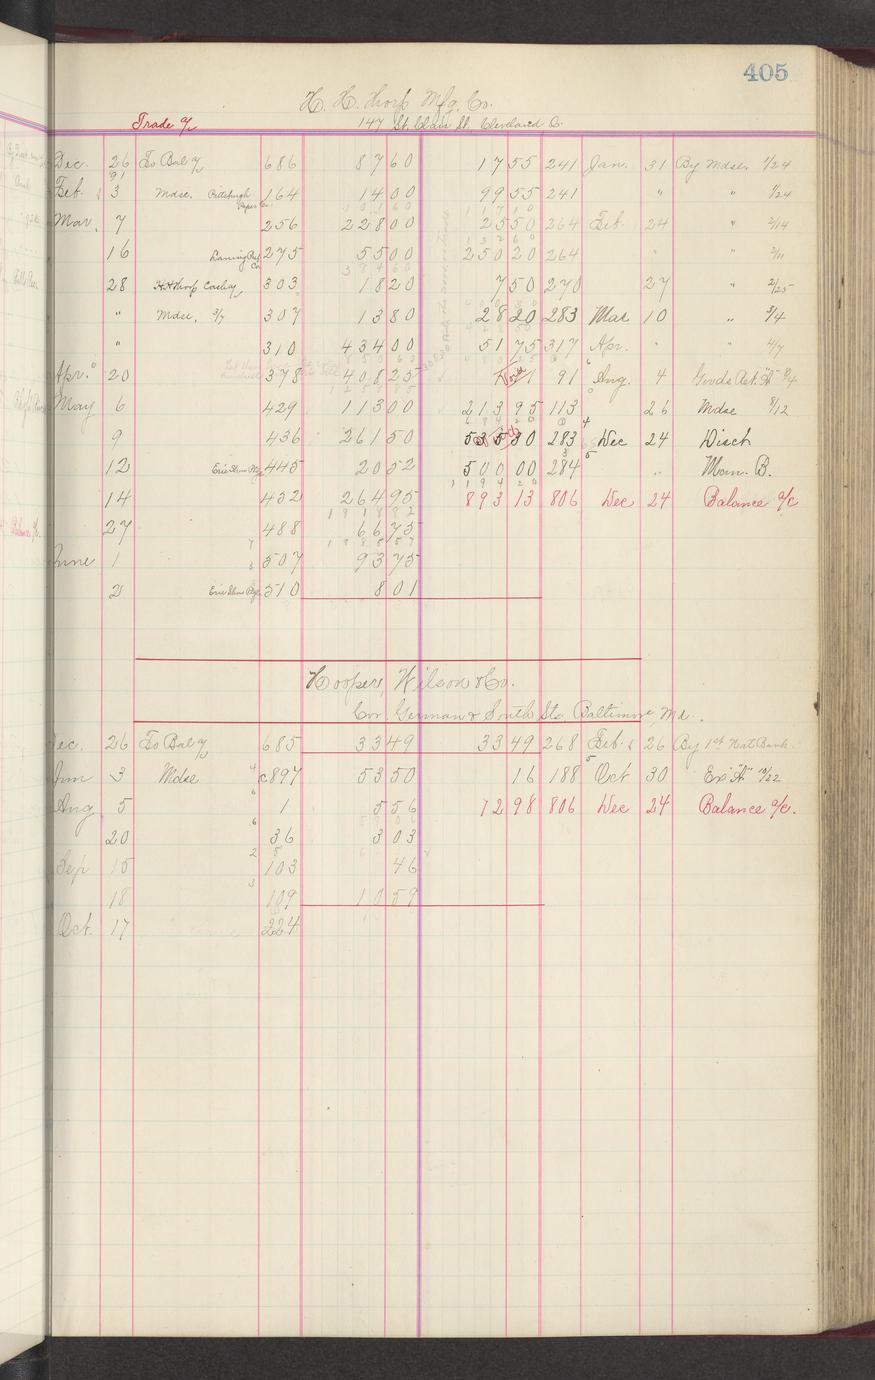 405
H. H. Thorp Mfg. Co.
Trade a/c 147 St. Clair St. Cleveland O.
Dec. 26 To Bal a/c 686 87 60 17 55 241 Jan. 31 By Mdse. 1/24
Feb. 3 Mdse. Pittsburgh Paper Co. 164 14 00 99 55 241 " " 1/24
Mar. 7 256 228 00 25 50 264 Feb. 24 " 2/14
16 275 55 00 250 20 264 " " 2/11
28 H.H. Thorp 303 18 20 7 50 270 27 " 2/25
" Mdse. 3/7 307 13 80 28 20 283 Mar 10 " 3/4
" 310 434 00 51 75 317 Apr. " " 4/7
Apr. 20 378 408 25 91 Aug. 4 Goods Ret. "A" 8/4
May 6 429 113 00 213 95 113 26 Mdse 8/12
9 436 261 50 283 Dec 24 Disct
12 445 20 52 500 00 284 " Man. B.
14 452 264 95 893 13 806 Dec 24 Balance a/c
27 488 66 75
June 1 507 93 75
2 510 8 01
Hooper, Wilson & Co.
Cor. German & South Sts. Baltimore, Md.
Dec. 26 To Bal a/c 685 33 49 33 49 268 Feb. 26 By 1st Nat Bank
Jun 3 Mdse c897 53 50 16 188 Oct 30 Ex "A" 10/22
Aug 5 1 5 56 72 98 806 Dec 24 Balance a/c.
20 36 3 03
Sep 15 103 46
18 109 10 59
Oct. 17 224